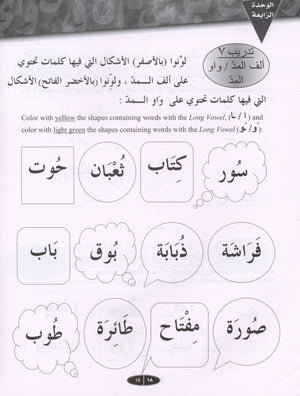 الوحدة
الرابعة
تدريب ٧
ألف المدّ / واو
المدّ
لوّنوا (بالأصفر) الأشكال التي فيها كلمات تحتوي
على ألف المـــدّ ، ولوّنوا (بالأخضر الفاتح) الأشكال
التي فيها كلمات تحتوي على واو المـــدّ :
Color with yellow the shapes containing words with the Long Vowel, (ا / ـا) and
color with light green the shapes containing words with the Long Vowel (و / ـو):
سُور كِتَاب ثُعْبَان حُوت
فَرَاشَة ذُبَابَة بُوق بَاب
صُورَة مِفْتَاح طَائِرَة طُوب
١٨